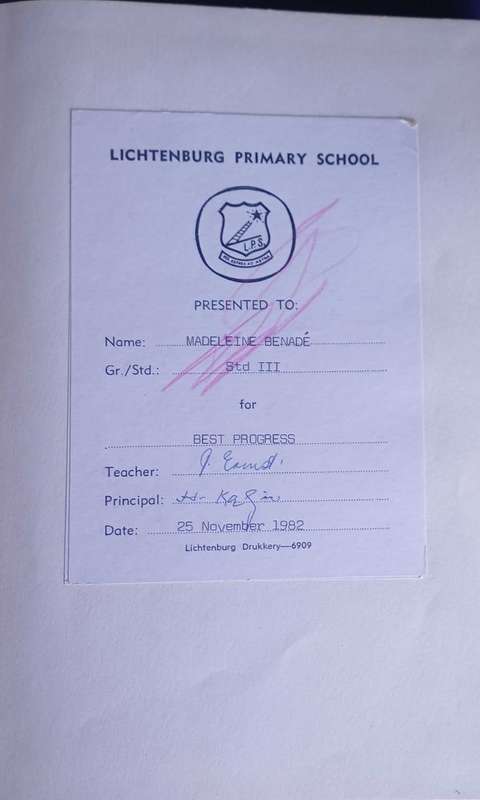 LICHTENBURG PRIMARY SCHOOL
L.P.S.
PRESENTED TO:
Name: MADELEINE BENADÉ
Gr./Std.: Std III
for
BEST PROGRESS
Teacher: J.
Principal: H.
Date: 25 November 1982
Lichtenburg Drukkery—6909